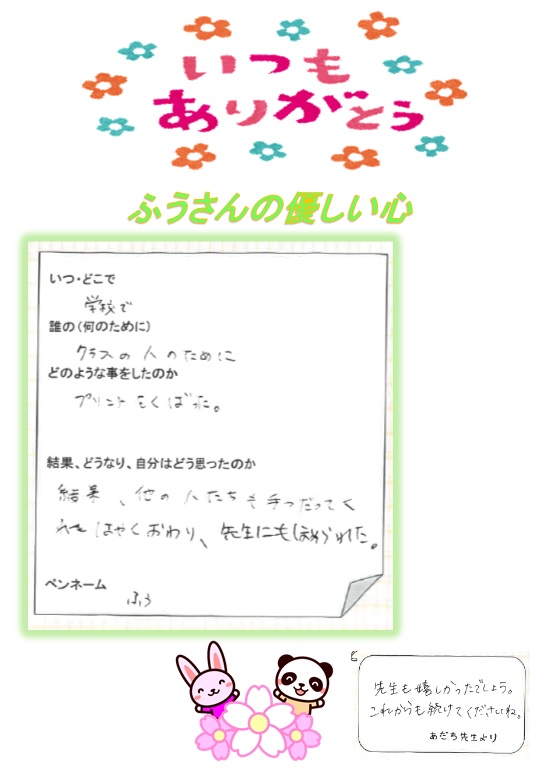 いつも
ありがとう
ふうさんの優しい心
いつ・どこで
学校で
誰の(何のために)
クラスの人のために
どのような事をしたのか
プリントをくばった。
結果、どうなり、自分はどう思ったのか
結果、他の人たちも手つだってく
れはやくおわり、先生にもほめられた。
ペンネーム
ふう
先生も嬉しかったでしょう。
これからも続けてくださいね。
あだち先生より